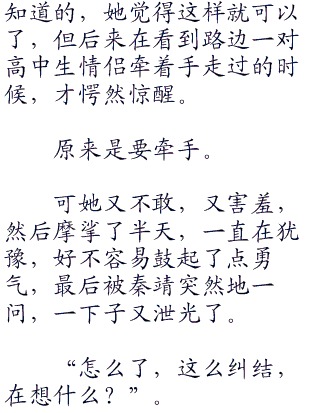 知道的，她觉得这样就可以
了，但后来在看到路边一对
高中生情侣牵着手走过的时
候，才愕然惊醒。
原来是要牵手。
可她又不敢，又害羞，
然后摩挲了半天，一直在犹
豫，好不容易鼓起了点勇
气，最后被秦靖突然地一
问，一下子又泄光了。
“怎么了，这么纠结，
在想什么？”。